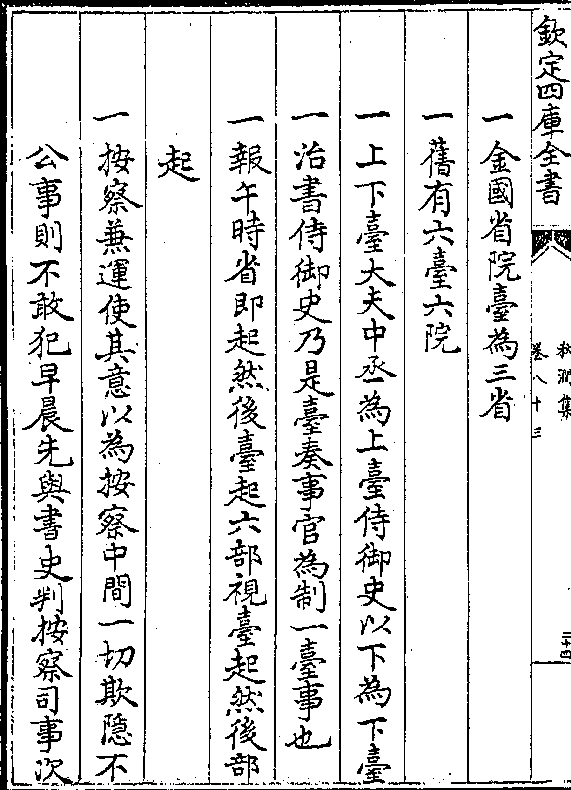 欽定四庫全書
秋澗集
卷八十三
二十四
一金國省院臺為三省
一舊有六臺六院
一上下臺大夫中丞為上臺侍御史以下為下臺
一治書侍御史乃是臺奏事官為制一臺事也
一報午時省即起然後臺起六部視臺起然後部
起
一按察兼運使其意以為按察中間一切欺隱不
公事則不敢犯早晨先與書史判按察司事次